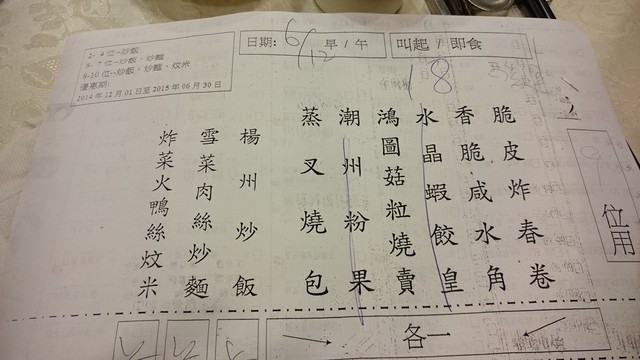 2- 4 位--炒飯
5- 7 位--炒飯、炒麵
8-10 位--炒飯、炒麵、炆米
優惠期:
2014 年 12 月 01 日至 2015 年 06 月 30 日
日期: 6/12 早 / 午
叫起 / 即食
18
脆皮炸春卷
香脆咸水角
水晶蝦餃皇
鴻圖菇粒燒賣
潮州粉果
蒸叉燒包
楊州炒飯
雪菜肉絲炒麵
炸菜火鴨絲炆米
位用
各一